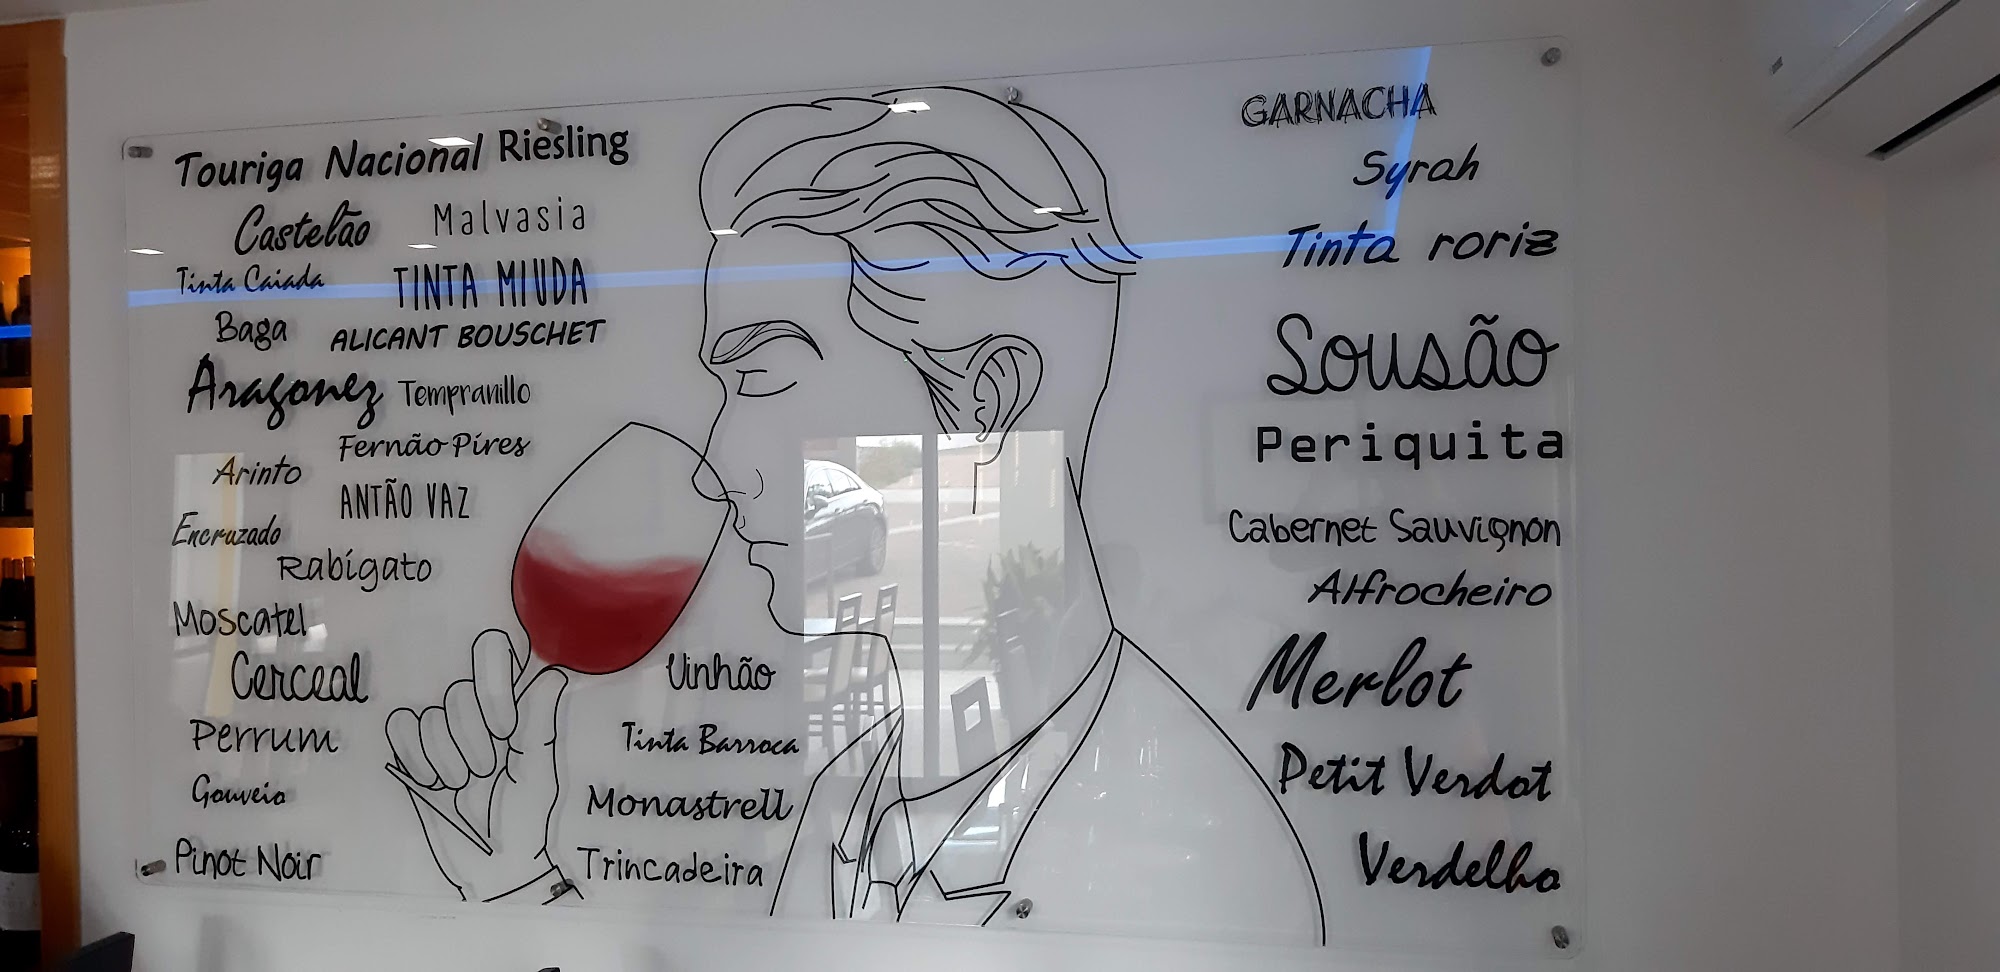 Touriga Nacional Riesling
Castelão Malvasia
Tinta Caiada TINTA MIUDA
Baga ALICANT BOUSCHET
Aragonez Tempranillo
Fernão Pires
Arinto
ANTÃO VAZ
Encruzado
Rabigato
Moscatel
Cerceal
Perrum
Gouveio
Pinot Noir
Vinhão
Tinta Barroca
Monastrell
Trincadeira
GARNACHA
Syrah
Tinta roriz
Sousão
Periquita
Cabernet Sauvignon
Alfrocheiro
Merlot
Petit Verdot
Verdelho